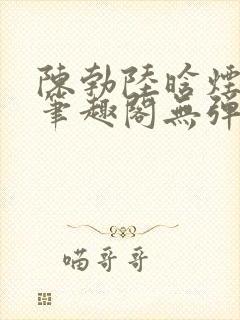 陳勃陸晗煙
筆趣閣無彈
喵哥哥